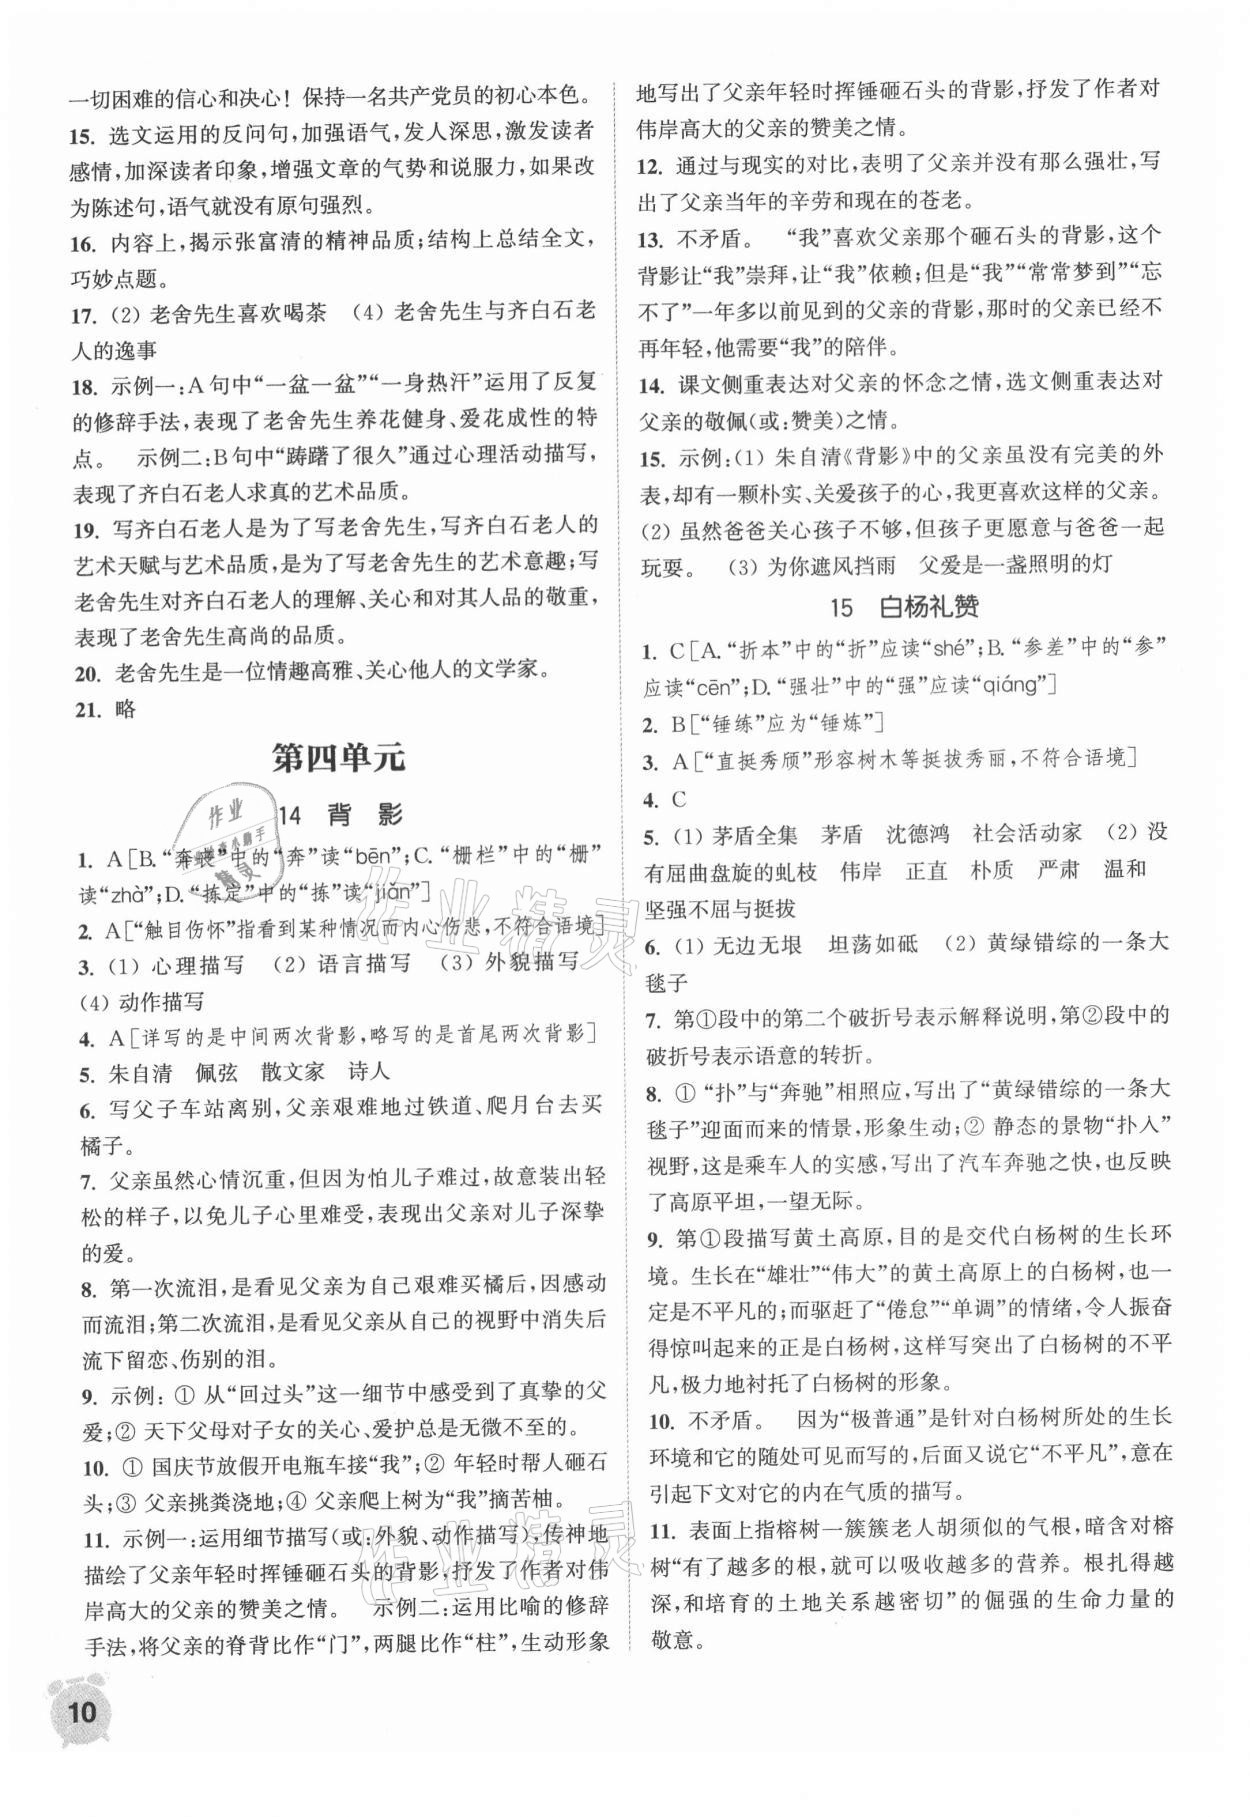 一切困难的信心和决心！保持一名共产党员的初心本色。
15. 选文运用的反问句,加强语气,发人深思,激发读者
感情,加深读者印象,增强文章的气势和说服力,如果改
为陈述句,语气就没有原句强烈。
16. 内容上,揭示张富清的精神品质;结构上总结全文,
巧妙点题。
17. (2) 老舍先生喜欢喝茶　(4) 老舍先生与齐白石老
人的逸事
18. 示例一:A 句中“一盆一盆”“一身热汗”运用了反复
的修辞手法,表现了老舍先生养花健身、爱花成性的特
点。　示例二:B句中“踌躇了很久”通过心理活动描写,
表现了齐白石老人求真的艺术品质。
19. 写齐白石老人是为了写老舍先生,写齐白石老人的
艺术天赋与艺术品质,是为了写老舍先生的艺术意趣;写
老舍先生对齐白石老人的理解、关心和对其人品的敬重,
表现了老舍先生高尚的品质。
20. 老舍先生是一位情趣高雅、关心他人的文学家。
21. 略
第四单元
14　背　影
1. A[B.“奔丧”中的“奔”读“bēn”;C.“栅栏”中的“栅”
读“zhà”;D.“拣定”中的“拣”读“jiǎn”]
2. A[“触目伤怀”指看到某种情况而内心伤悲,不符合语境]
3. (1) 心理描写　(2) 语言描写　(3) 外貌描写
(4) 动作描写
4. A[详写的是中间两次背影,略写的是首尾两次背影]
5. 朱自清　佩弦　散文家　诗人
6. 写父子车站离别,父亲艰难地过铁道、爬月台去买
橘子。
7. 父亲虽然心情沉重,但因为怕儿子难过,故意装出轻
松的样子,以免儿子心里难受,表现出父亲对儿子深挚
的爱。
8. 第一次流泪,是看见父亲为自己艰难买橘后,因感动
而流泪;第二次流泪,是看见父亲从自己的视野中消失后
流下留恋、伤别的泪。
9. 示例: ① 从“回过头”这一细节中感受到了真挚的父
爱;② 天下父母对子女的关心、爱护总是无微不至的。
10. ① 国庆节放假开电瓶车接“我”;② 年轻时帮人砸石
头;③ 父亲挑粪浇地;④ 父亲爬上树为“我”摘苦柚。
11. 示例一:运用细节描写(或:外貌、动作描写),传神地
描绘了父亲年轻时挥锤砸石头的背影,抒发了作者对伟
岸高大的父亲的赞美之情。　示例二:运用比喻的修辞
手法,将父亲的脊背比作“门”,两腿比作“柱”,生动形象
10
地写出了父亲年轻时挥锤砸石头的背影,抒发了作者对
伟岸高大的父亲的赞美之情。
12. 通过与现实的对比,表明了父亲并没有那么强壮,写
出了父亲当年的辛劳和现在的苍老。
13. 不矛盾。　“我”喜欢父亲那个砸石头的背影,这个
背影让“我”崇拜,让“我”依赖;但是“我”“常常梦到”“忘
不了”一年多以前见到的父亲的背影,那时的父亲已经不
再年轻,他需要“我”的陪伴。
14. 课文侧重表达对父亲的怀念之情,选文侧重表达对
父亲的敬佩(或:赞美)之情。
15. 示例:(1) 朱自清《背影》中的父亲虽没有完美的外
表,却有一颗朴实、关爱孩子的心,我更喜欢这样的父亲。
(2) 虽然爸爸关心孩子不够,但孩子更愿意与爸爸一起
玩耍。　(3) 为你遮风挡雨　父爱是一盏照明的灯
15　白杨礼赞
1. C[A.“折本”中的“折”应读“shé”;B.“参差”中的“参”
应读“cēn”;D.“强壮”中的“强”应读“qiáng”]
2. B[“锤练”应为“锤炼”]
3. A[“直挺秀颀”形容树木等挺拔秀丽,不符合语境]
4. C
5. (1) 茅盾全集　茅盾　沈德鸿　社会活动家　(2) 没
有屈曲盘旋的虬枝　伟岸　正直　朴质　严肃　温和
坚强不屈与挺拔
6. (1) 无边无垠　坦荡如砥　(2) 黄绿错综的一条大
毯子
7. 第①段中的第二个破折号表示解释说明,第②段中的
破折号表示语意的转折。
8. ① “扑”与“奔驰”相照应,写出了“黄绿错综的一条大
毯子”迎面而来的情景,形象生动;② 静态的景物“扑入”
视野,这是乘车人的实感,写出了汽车奔驰之快,也反映
了高原平坦,一望无际。
9. 第①段描写黄土高原,目的是交代白杨树的生长环
境。生长在“雄壮”“伟大”的黄土高原上的白杨树,也一
定是不平凡的;而驱赶了“倦怠”“单调”的情绪,令人振奋
得惊叫起来的正是白杨树,这样写突出了白杨树的不平
凡,极力地衬托了白杨树的形象。
10. 不矛盾。　因为“极普通”是针对白杨树所处的生长
环境和它的随处可见而写的,后面又说它“不平凡”,意在
引起下文对它的内在气质的描写。
11. 表面上指榕树一簇簇老人胡须似的气根,暗含对榕
树“有了越多的根,就可以吸收越多的营养。根扎得越
深,和培育的土地关系越密切”的倔强的生命力量的
敬意。
作业精灵
作业精灵